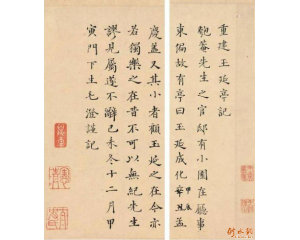 重建玉延亭記
匏菴先生之官邸有小園在廳事
東偏故有亭曰玉延成化
慶蓋又其小者觀玉延之在今亦
若獨樂之在昔不可以無紀先生
謬見屬遂不辭己未冬十二月甲
寅門下士毛澄謹記